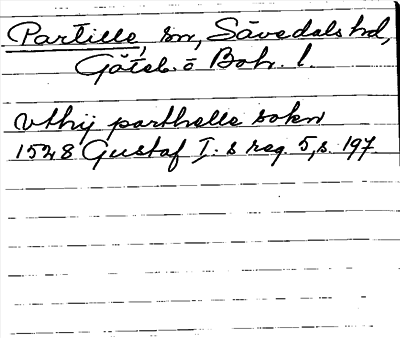 Partille, sn, Sävedals hd,
Göteb. o Boh. l.
vthij parthelle sokn
1528 Gustaf I:s reg. 5, s. 197